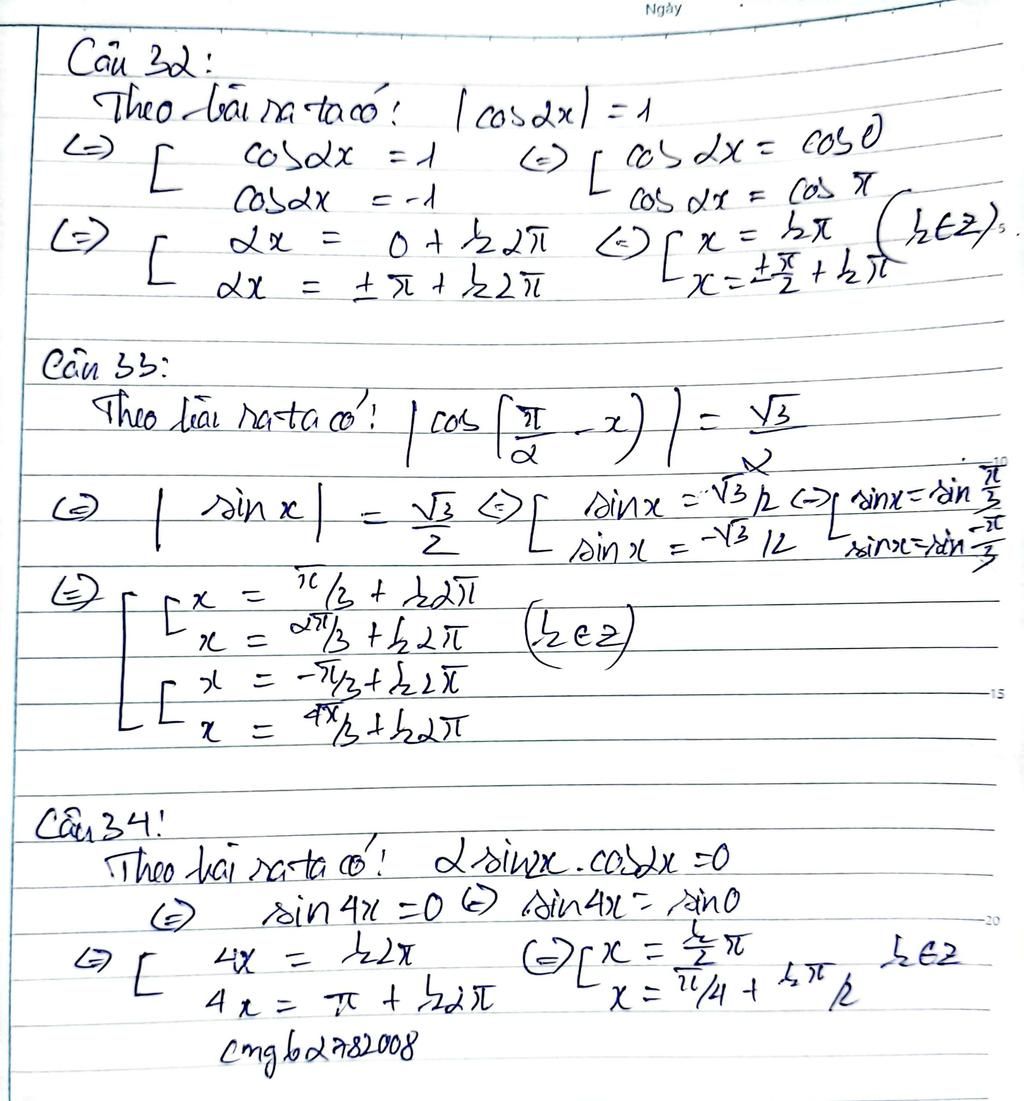 Ngày
Câu 32:
Theo bài ra ta có: |cos2x| = 1
<=> [ cos2x = 1 <=> [ cos 2x = cos 0
cos2x = -1 cos 2x = cos π
<=> [ 2x = 0 + k2π <=> [ x = kπ (k∈Z)
2x = ±π + k2π x = ±π/2 + kπ
5
Câu 33:
Theo bài ra ta có: |cos(π/2 - x)| = √3/2
10
<=> |sin x| = √3/2 <=> [ sin x = √3/2 <=> [ sinx = sin π/3
sin x = -√3/2 sinx = sin -π/3
<=> [ [ x = π/3 + k2π
x = 2π/3 + k2π (k∈Z)
[ x = -π/3 + k2π
15
x = 4π/3 + k2π
Câu 34:
Theo bài ra ta có: 2sin2x.cos2x = 0
<=> sin 4x = 0 <=> sin4x = sin0
20
<=> [ 4x = k2π <=> [ x = k/2 π k∈Z
4x = π + k2π x = π/4 + kπ/2
cmgb2782008